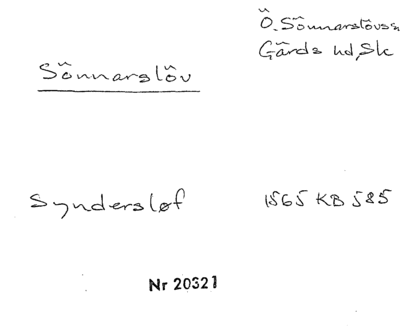 Ö. Sönnarslövs s
Gärds hd, Sk
Sönnarslöv
Syndersløf 1565 KB 585
Nr 20321